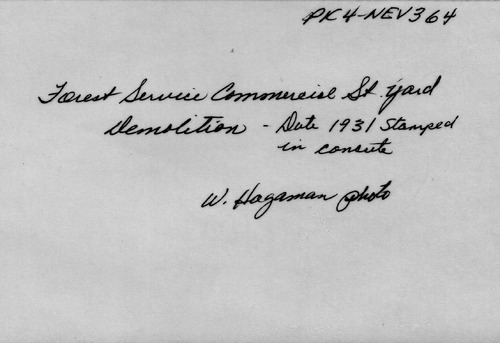 PK4-NEV364
Forest Service Commercial St. yard
Demolition - Date 1931 Stamped
in concrete
W. Hagaman photo